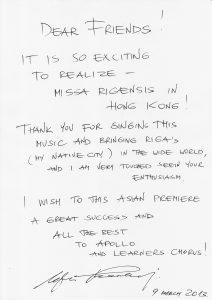 DEAR FRIENDS!
IT IS SO EXCITING
TO REALIZE –
MISSA RIGENSIS IN
HONG KONG!
THANK YOU FOR SINGING THIS
MUSIC AND BRINGING RIGA'S
(MY NATIVE CITY) IN THE WIDE WORLD,
AND I AM VERY TOUCHED SEEING YOUR
ENTHUSIASM.
I WISH TO THIS ASIAN PREMIERE
A GREAT SUCCESS AND
ALL THE BEST
TO APOLLO
AND LEARNERS CHORUS!
9 MARCH 2012